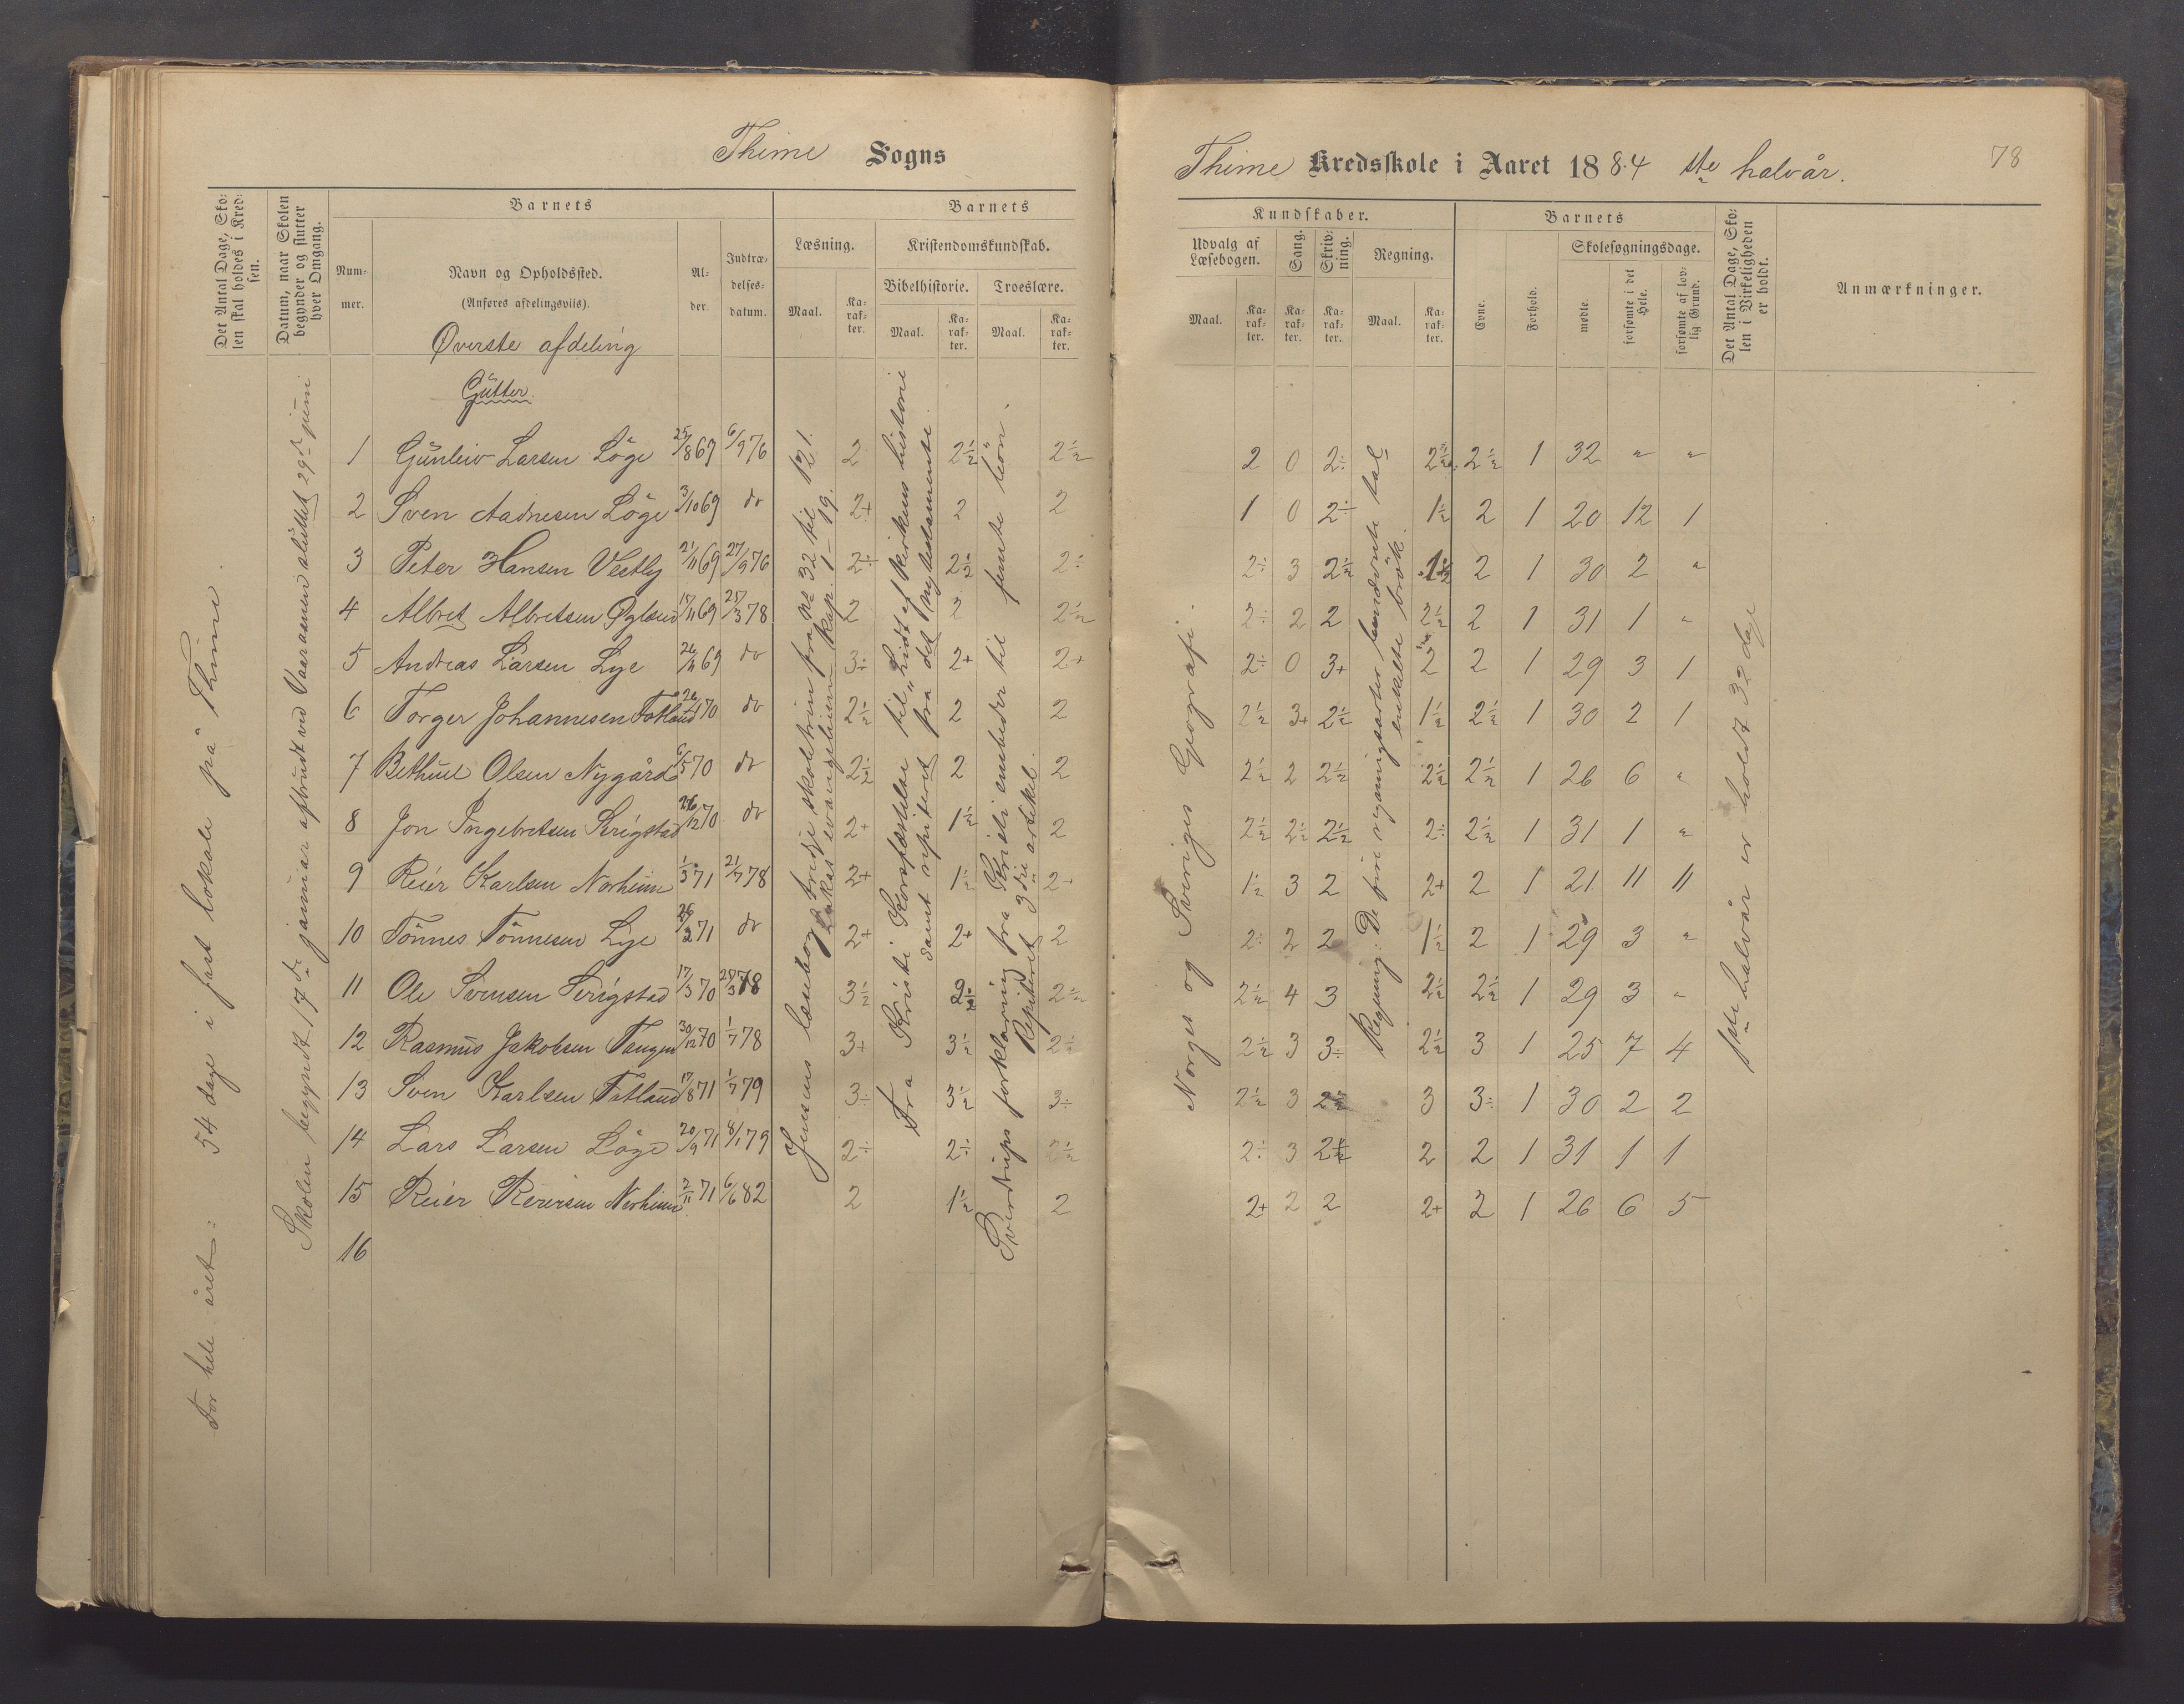 Thime Sogns
Det Antal Dage, Skolen skal holdes i Kredsen.
Datum, naar Skolen begynder og slutter hver Omgang.
Barnets
Nummer.
Navn og Opholdssted.
(Anføres afdelingsviis).
Alder.
Indtrædelsesdatum.
Barnets
Læsning.
Maal.
Karakter.
Kristendomskundskab.
Bibelhistorie.
Maal.
Karakter.
Troeslære.
Maal.
Karakter.
For hele året: 54 dage i fast lokale på Thime.
Skolen begyndt 17de januar afbrudt ved Vaaraanen sluttet 29de juni
Øverste afdeling
Gutter.
Jensens læsebog tredje skoletrin fra No 32 til 121.
Lukas evangelium kap. 1-19.
Fra Kristi Korsfæstelse til "Lidt af kirkens historie"
samt repiteret fra det ny testamente.
Sverdrups forklaring fra Kristi embeder til femte bøn.
Repiteret 3die artikel.
1 Gunleiv Larsen Löge 25/8 69 6/9 76 2 2½ 2½
2 Sven Aadnesen Löge 3/10 69 do 2+ 2 2
3 Peter Hansen Vestly 21/11 69 27/9 76 2÷ 2½ 2÷
4 Albret Albretsen Øgland 17/11 69 25/3 78 2 2 2½
5 Andreas Larsen Lye 26/11 69 do 3÷ 2+ 2+
6 Torger Johannesen Fotland 26/1 70 do 2½ 2 2
7 Bethuel Olsen Nygård 6/5 70 do 2½ 2 2
8 Jon Ingebretsen Serigstad 26/12 70 do 2+ 1½ 2
9 Reier Karlsen Norheim 1/3 71 21/7 78 2+ 1½ 2+
10 Tönnes Tönnesen Lye 26/2 71 do 2+ 2+ 2
11 Ole Svensen Serigstad 17/3 70 28/3 78 3½ 2½ 2½
12 Rasmus Jakobsen Tangen 30/12 70 1/7 78 3+ 3½ 2½
13 Sven Karlsen Fotland 17/8 71 1/7 79 3÷ 3½ 3÷
14 Lars Larsen Löge 20/9 71 8/1 79 2÷ 2÷ 2½
15 Reier Reiersen Norheim 2/11 71 6/6 82 2 1½ 2
16
Thime Kredsskole i Aaret 1884 1ste halvår.
78
Kundskaber.
Udvalg af Læsebogen.
Maal.
Karakter.
Sang.
Karakter.
Skrivning.
Karakter.
Regning.
Maal.
Karakter.
Barnets
Evne.
Forhold.
Skolesøgningsdage.
mødte.
forsømte i det Hele.
forsømte af lovlig Grund.
Det Antal Dage, Skolen i Virkeligheden er holdt.
Anmærkninger.
Norges og Sveriges Geografi.
Regning: De fire regningsarter benævnte tal
enkelte brök.
1ste halvår er holdt 32 dage
2 0 2÷ 2½ 2½ 1 32 " "
1 0 2÷ 1½ 2 1 20 12 1
2÷ 3 2½ 1½ 2 1 30 2 "
2÷ 2 2 2½ 2 1 31 1 "
2÷ 0 3+ 2 2 1 29 3 1
2½ 3+ 2½ 1½ 2½ 1 30 2 1
2½ 2 2½ 2½ 2½ 1 26 6 "
2½ 2½ 2½ 2÷ 2½ 1 31 1 "
1½ 3 2 2+ 2 1 21 11 11
2÷ 2 2 1½ 2 1 29 3 "
2½ 4 3 2½ 2½ 1 29 3 "
2½ 3 3÷ 2½ 3 1 25 7 4
2½ 3 2½ 3 3÷ 1 30 2 2
2÷ 3 2½ 2 2 1 31 1 1
2+ 2 2 2+ 2 1 26 6 5